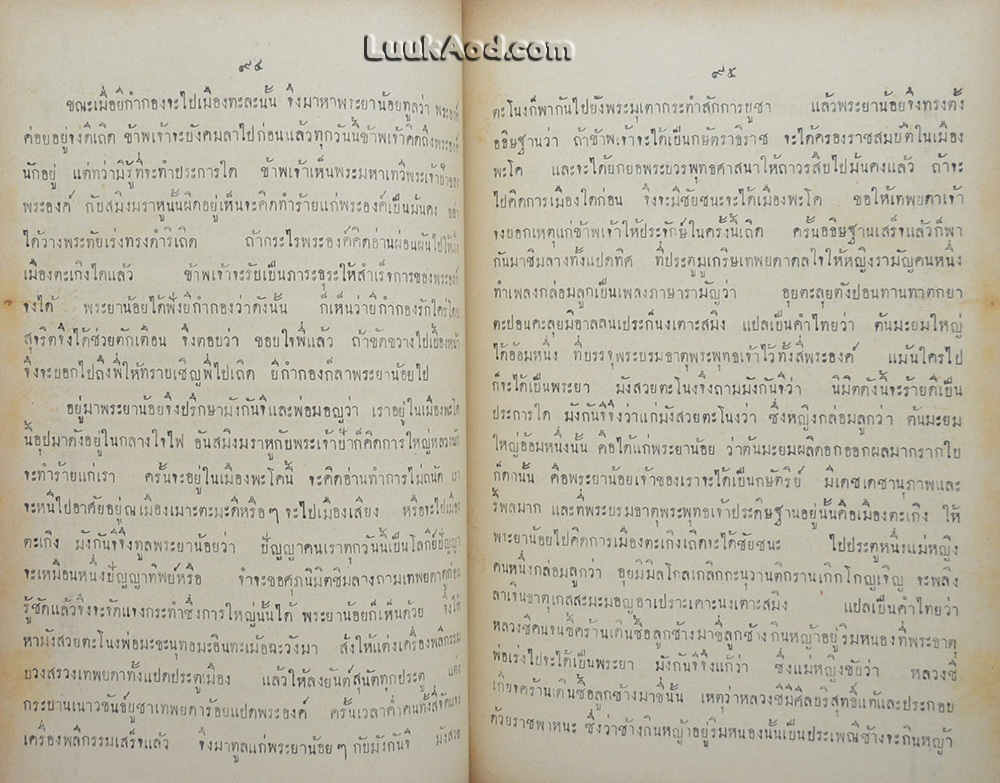 LuukAod.com
๙๔
ขณะเมื่อยิกำกองจะไปเมืองทะละนั้น จึงมาหาพระยาน้อยทูลว่า พระองค์
ค่อยอยู่จงดีเถิด ข้าพเจ้าจะบังคมลาไปก่อนแล้วทุกวันนี้ข้าพเจ้าคิดถึงพระองค์
นักอยู่ แต่ทว่ามิรู้ที่จะทำประการใด ข้าพเจ้าเห็นพระมหาเทวีพระเจ้าป้าของ
พระองค์ กับสมิงมราหูนั้นผิดอยู่เห็นจะคิดทำร้ายแก่พระองค์เป็นมั่นคง อย่า
ได้วางพระทัยเร่งทรงดำริเถิด ถ้ากระไรพระองค์คิดอ่านผ่อนผันไปให้ถึง
เมืองตะเกิงได้แล้ว ข้าพเจ้าจะรับเป็นภาระธุระให้สำเร็จการของพระองค์
จงได้ พระยาน้อยได้ฟังยิกำกองว่าดังนั้น ก็เห็นว่ายิกำกองรักใคร่โดย
สุจริตจึงได้ช่วยตักเตือน จึงตอบว่า ขอบใจพี่แล้ว ถ้าขัดขวางไปเบื้องหน้า
จึงจะบอกไปถึงพี่ให้ทราบเชิญพี่ไปเถิด ยิกำกองก็ลาพระยาน้อยไป
อยู่มาพระยาน้อยจึงปรึกษามังกันจีและพ่อมอญว่า เราอยู่ในเมืองพะโค
นี้อุปมาดังอยู่ในกลางใจไฟ อันสมิงมราหูกับพระเจ้าป้าก็คิดการใหญ่หลวงนัก
จะทำร้ายแก่เรา ครั้นจะอยู่ในเมืองพะโคนี้ จะคิดอ่านทำการไม่ถนัด เรา
จะหนีไปอาศัยอยู่ณเมืองเมาะตะมะดีหรือๆ จะไปเมืองเสียง หรือจะไปเมือง
ตะเกิง มังกันจีจึงทูลพระยาน้อยว่า ปัญญาคนเราทุกวันนี้เป็นโลกีย์ปัญญา
จะเหมือนหนึ่งปัญญาทิพย์หรือ จำจะขอศุภนิมิตซิมลางถามเทพยดาก่อน
รู้ชัดแล้วจึงจะจัดแจงกระทำซึ่งการใหญ่นั้นได้ พระยาน้อยก็เห็นด้วย จึงให้
หามังสวยตะโนงพ่อมะขะนุทอมะอินทะเม้อฉะวังมา สั่งให้แต่งเครื่องพลีกรรม
บวงสรวงเทพยดาทั้งแปดประตูเมือง แล้วให้ลงยันต์สุนัตทุกประตู แต่ง
กระบานเนาวขันธ์บูชาเทพยดาร้อยแปดพระองค์ ครั้นเวลาค่ำคนทั้งสี่จัดแจง
เครื่องพลีกรรมเสร็จแล้ว จึงมาทูลแก่พระยาน้อยๆ กับมังกันจี มังสวย
๙๕
ตะโนงก็พากันไปยังพระมุเตากระทำสักการบูชา แล้วพระยาน้อยจึงทรงตั้ง
อธิษฐานว่า ถ้าข้าพเจ้าจะได้เป็นกษัตราธิราช จะได้ครองราชสมบัติในเมือง
พะโค และจะได้ยกยอพระบวรพุทธศาสนาให้ถาวรสืบไปมั่นคงแล้ว ถ้าจะ
ไปคิดการเมืองใดก่อน จึงจะมีชัยชนะจะได้เมืองพะโค ขอให้เทพยดาเจ้า
จงบอกเหตุแก่ข้าพเจ้าให้ประจักษ์ในครั้งนี้เถิด ครั้นอธิษฐานเสร็จแล้วก็พา
กันมาซิมลางทั้งแปดทิศ ที่ประตูมูเกริษเทพยดาดลใจให้หญิงรามัญคนหนึ่ง
ทำเพลงกล่อมลูกเป็นเพลงภาษารามัญว่า อุยตะลุยตังปอนทานทาตกยา
ตะปอนคะลุยมิอาลลนเประก็นงเตาะสมิง แปลเป็นคำไทยว่า ต้นมะยมใหญ่
ได้อ้อมหนึ่ง ที่บรรจุพระบรมธาตุพระพุทธเจ้าไว้ทั้งสี่พระองค์ แม้นใครไป
ก็จะได้เป็นพระยา มังสวยตะโนงจึงถามมังกันจีว่า นิมิตดังนี้จะร้ายดีเป็น
ประการใด มังกันจีจึงว่าแก่มังสวยตะโนงว่า ซึ่งหญิงกล่อมลูกว่า ต้นมะยม
ใหญ่อ้อมหนึ่งนั้น คือได้แก่พระยาน้อย ว่าต้นมะยมผลิดอกออกผลมากรากใบ
ก็ดกนั้น คือพระยาน้อยเจ้าของเราจะได้เป็นกษัทริย์ มีเดชเดชานุภาพและ
รี้พลมาก และที่พระบรมธาตุพระพุทธเจ้าประดิษฐานอยู่นั้นคือเมืองตะเกิง ให้
พระยาน้อยไปคิดการเมืองตะเกิงเถิดจะได้ชัยชนะ ไปประตูหนึ่งแม่หญิง
คนหนึ่งกล่อมลูกว่า อุยมิมิลโกลเกลิกกะนุวานติกรานเกิกโกญเจิญ จะพลิง
ลาเจินธาตุเกสสะมะมอญอาเปราะเคาะนงเตาะสมิง แปลเป็นคำไทยว่า
หลวงชีคนจนขี้คร้านเดินซื้อลูกช้างมาขี่ลูกช้างกินหญ้าอยู่ริมหนองที่พระธาตุ
พ่อเร่งไปจะได้เป็นพระยา มังกันจีจึงแก้ว่า ซึ่งแม่หญิงขับว่า หลวงชี
เกียจคร้านเดินซื้อลูกช้างมาขี่นั้น เหตุว่าหลวงชีมีศีลบริสุทธิ์แท้และประกอบ
ด้วยราชพาหนะ ซึ่งว่าช้างกินหญ้าอยู่ริมหนองนั้นเป็นประเพณีช้างจะกินหญ้า